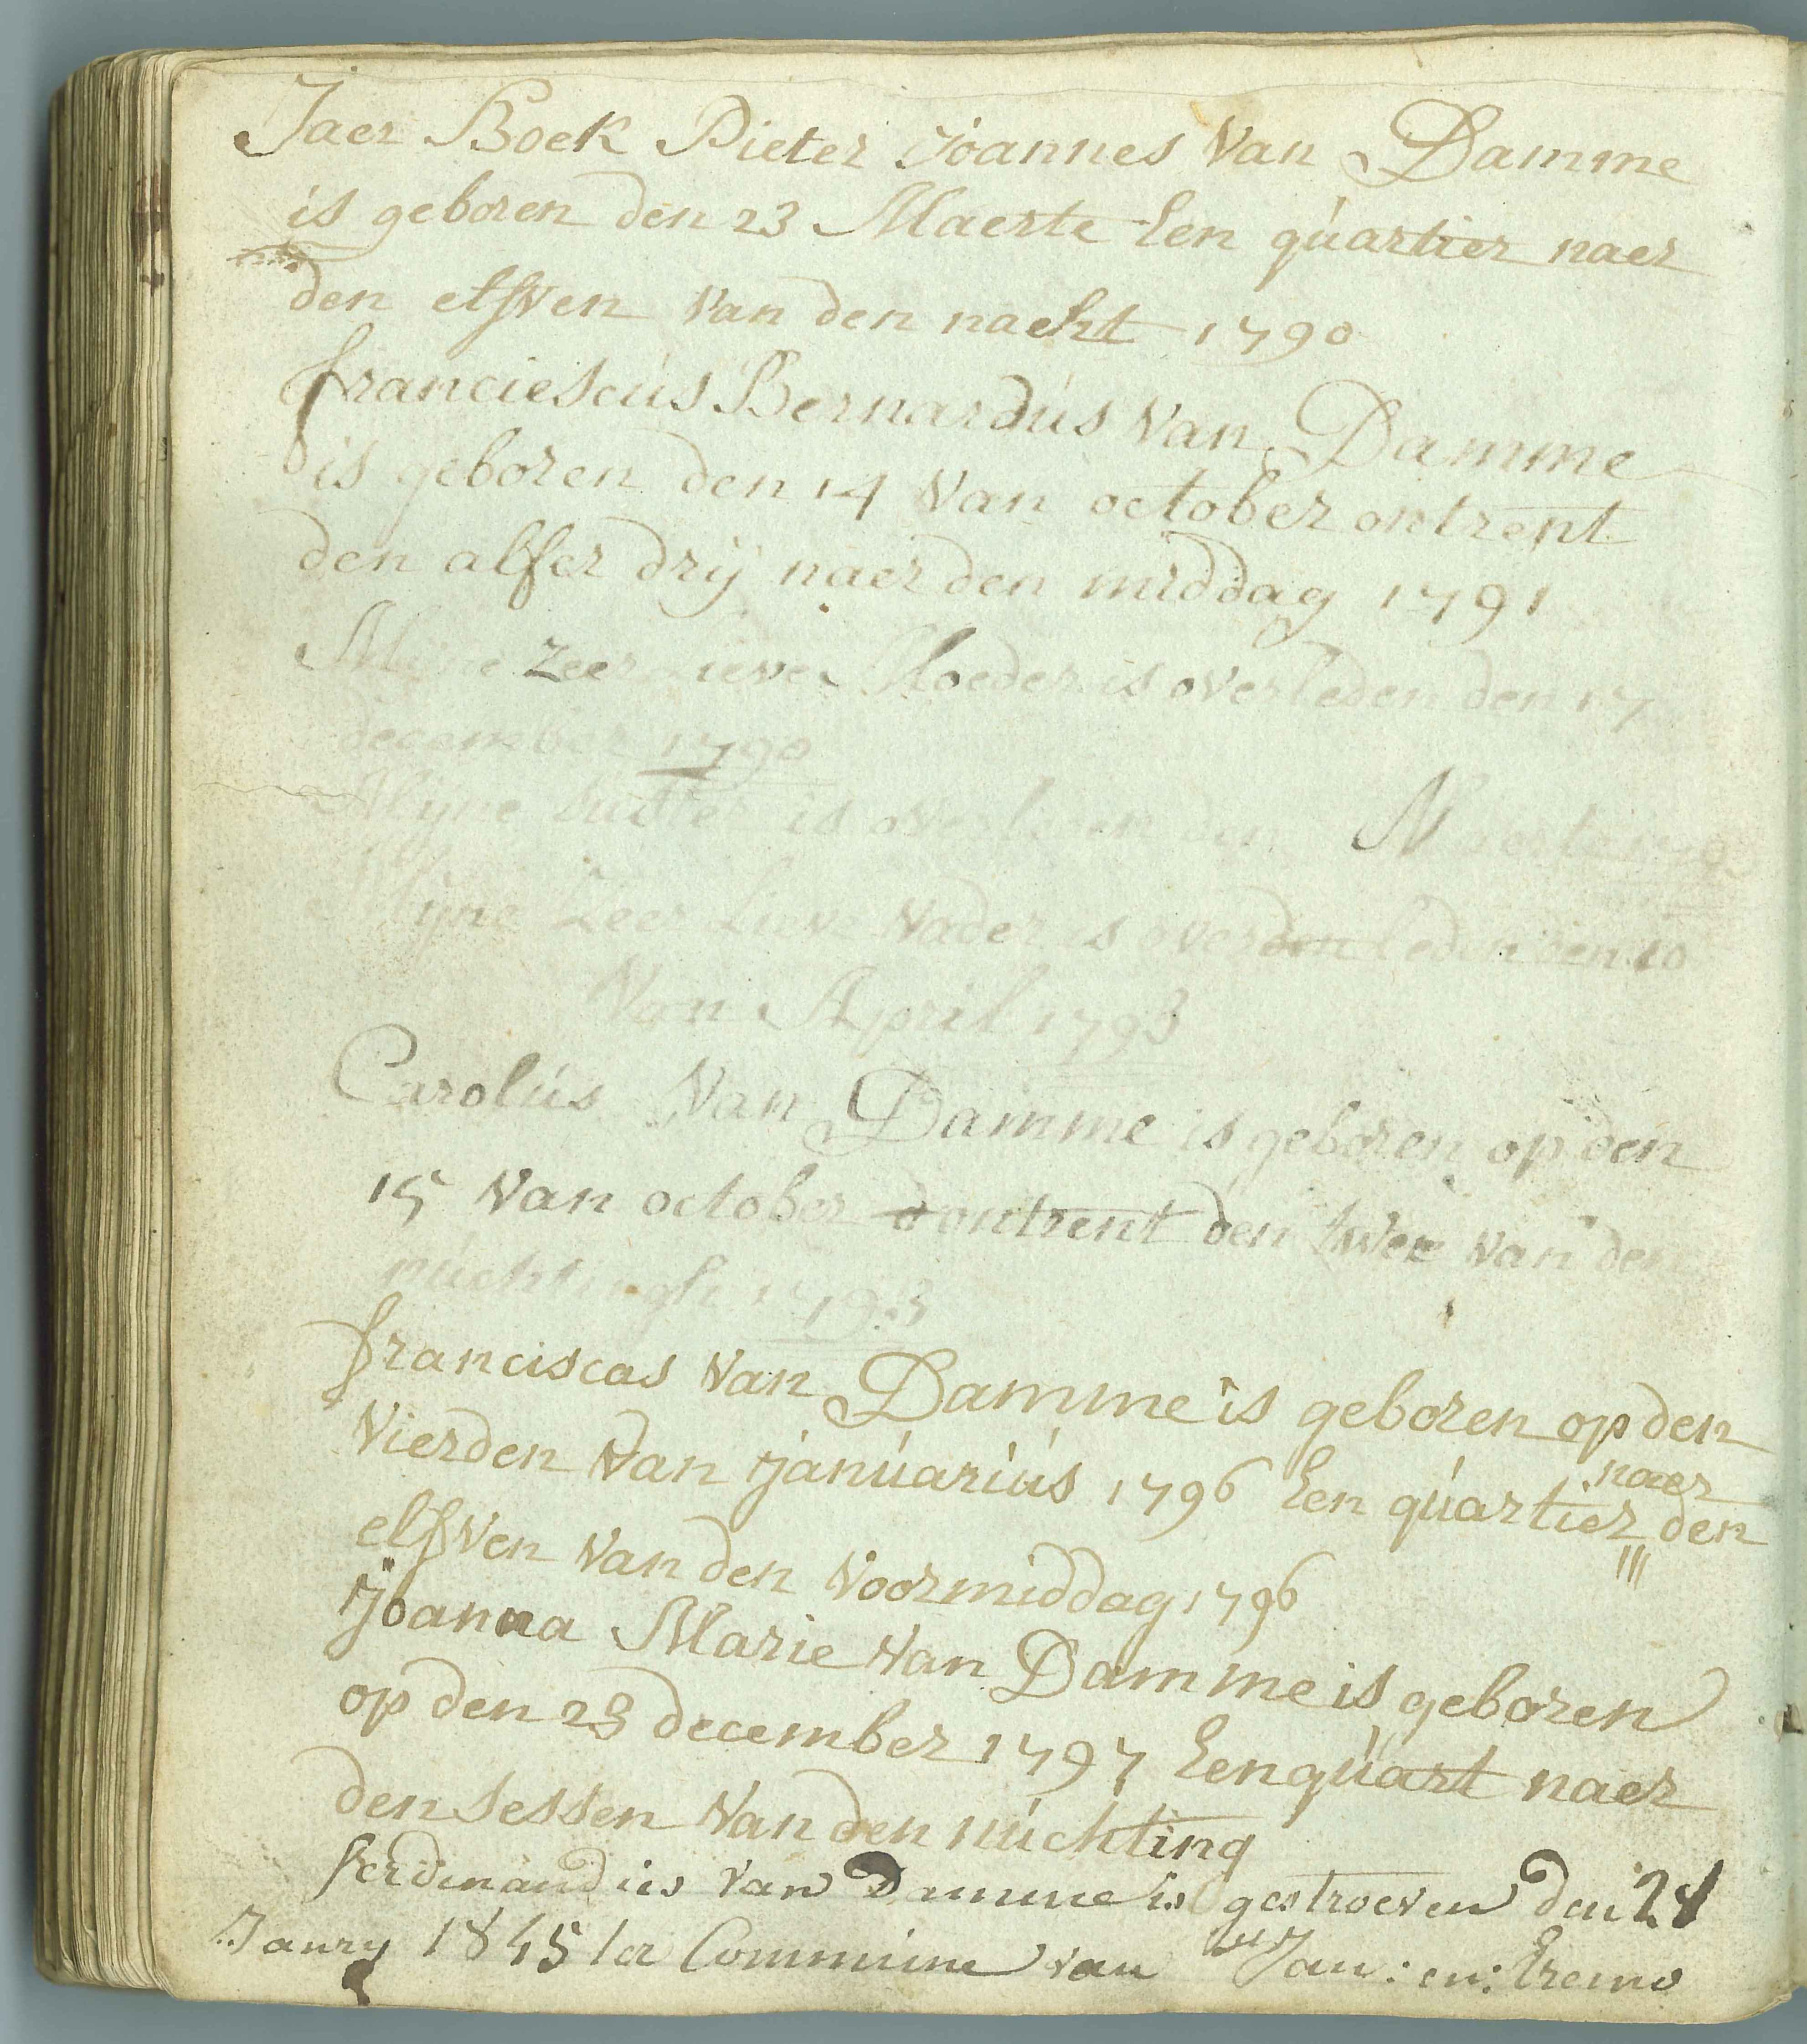 Jaer Boek Pieter Joannes Van Damme
is geboren den 23 Maerte Een quartier naer
den elfven van den nacht 1790
franciescus Bernardus Van Damme
is geboren den 14 Van october ontrent
den alfer drij naer den middag 1791
Mijne zeer lieve Moeder is overleden den 17
december 1790
Mijne is overleden den
Mijne Zeer Lieve Vader is overden leden den 10
Van April 1793
Carolus Van Damme is geboren op den
15 Van october d ontrent den twee van den
nuchtingh 1793
franciscas Van Damme is geboren op den
Vierden Van januarius 1796 Een quartier naer den
elfven van den Voormiddag 1796
joanna Marie Van Damme is geboren
op den 23 december 1797 Een quart naer
den sessen Van den nuchting
ferdinandus Van Damme is gestroeven den 21
Janry 1845 Commune van